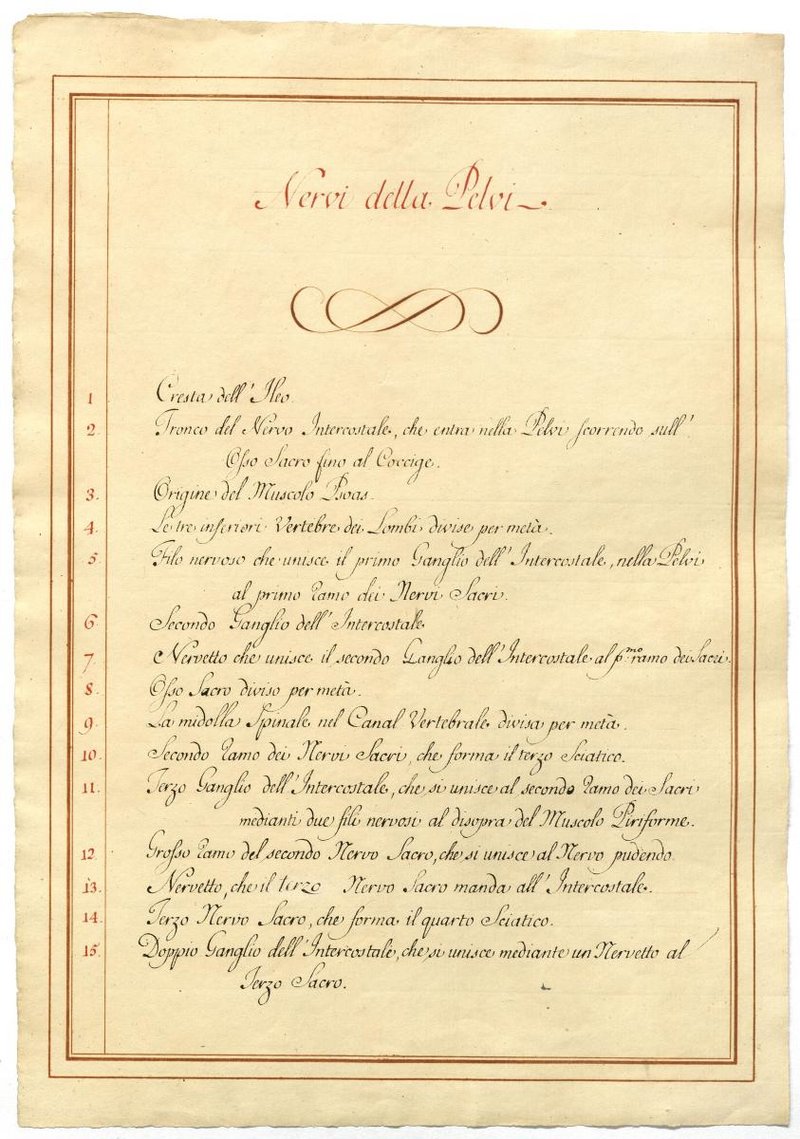 Nervi della Pelvi
1 Cresta dell' Ileo.
2 Tronco del Nervo Intercostale, che entra nella Pelvi scorrendo sull'
Osso Sacro fino al Coccige.
3. Origine del Muscolo Psoas.
4. Le tre inferiori Vertebre dei Lombi divise per metà.
5. Filo nervoso che unisce il primo Ganglio dell' Intercostale, nella Pelvi
al primo ramo dei Nervi Sacri.
6. Secondo Ganglio dell' Intercostale
7. Nervetto che unisce il secondo Ganglio dell' Intercostale al p.mo ramo dei Sacri.
8. Osso Sacro diviso per metà.
9. La midolla Spinale nel Canal Vertebrale divisa per metà.
10. Secondo ramo dei Nervi Sacri, che forma il terzo Sciatico.
11. Terzo Ganglio dell' Intercostale, che si unisce al secondo ramo dei Sacri
medianti due fili nervosi al disopra del Muscolo Piriforme.
12. Grosso ramo del secondo Nervo Sacro, che si unisce al Nervo pudendo.
13. Nervetto, che il terzo Nervo Sacro manda all' Intercostale.
14. Terzo Nervo Sacro, che forma il quarto Sciatico.
15. Doppio Ganglio dell' Intercostale, che si unisce mediante un Nervetto al
Terzo Sacro.